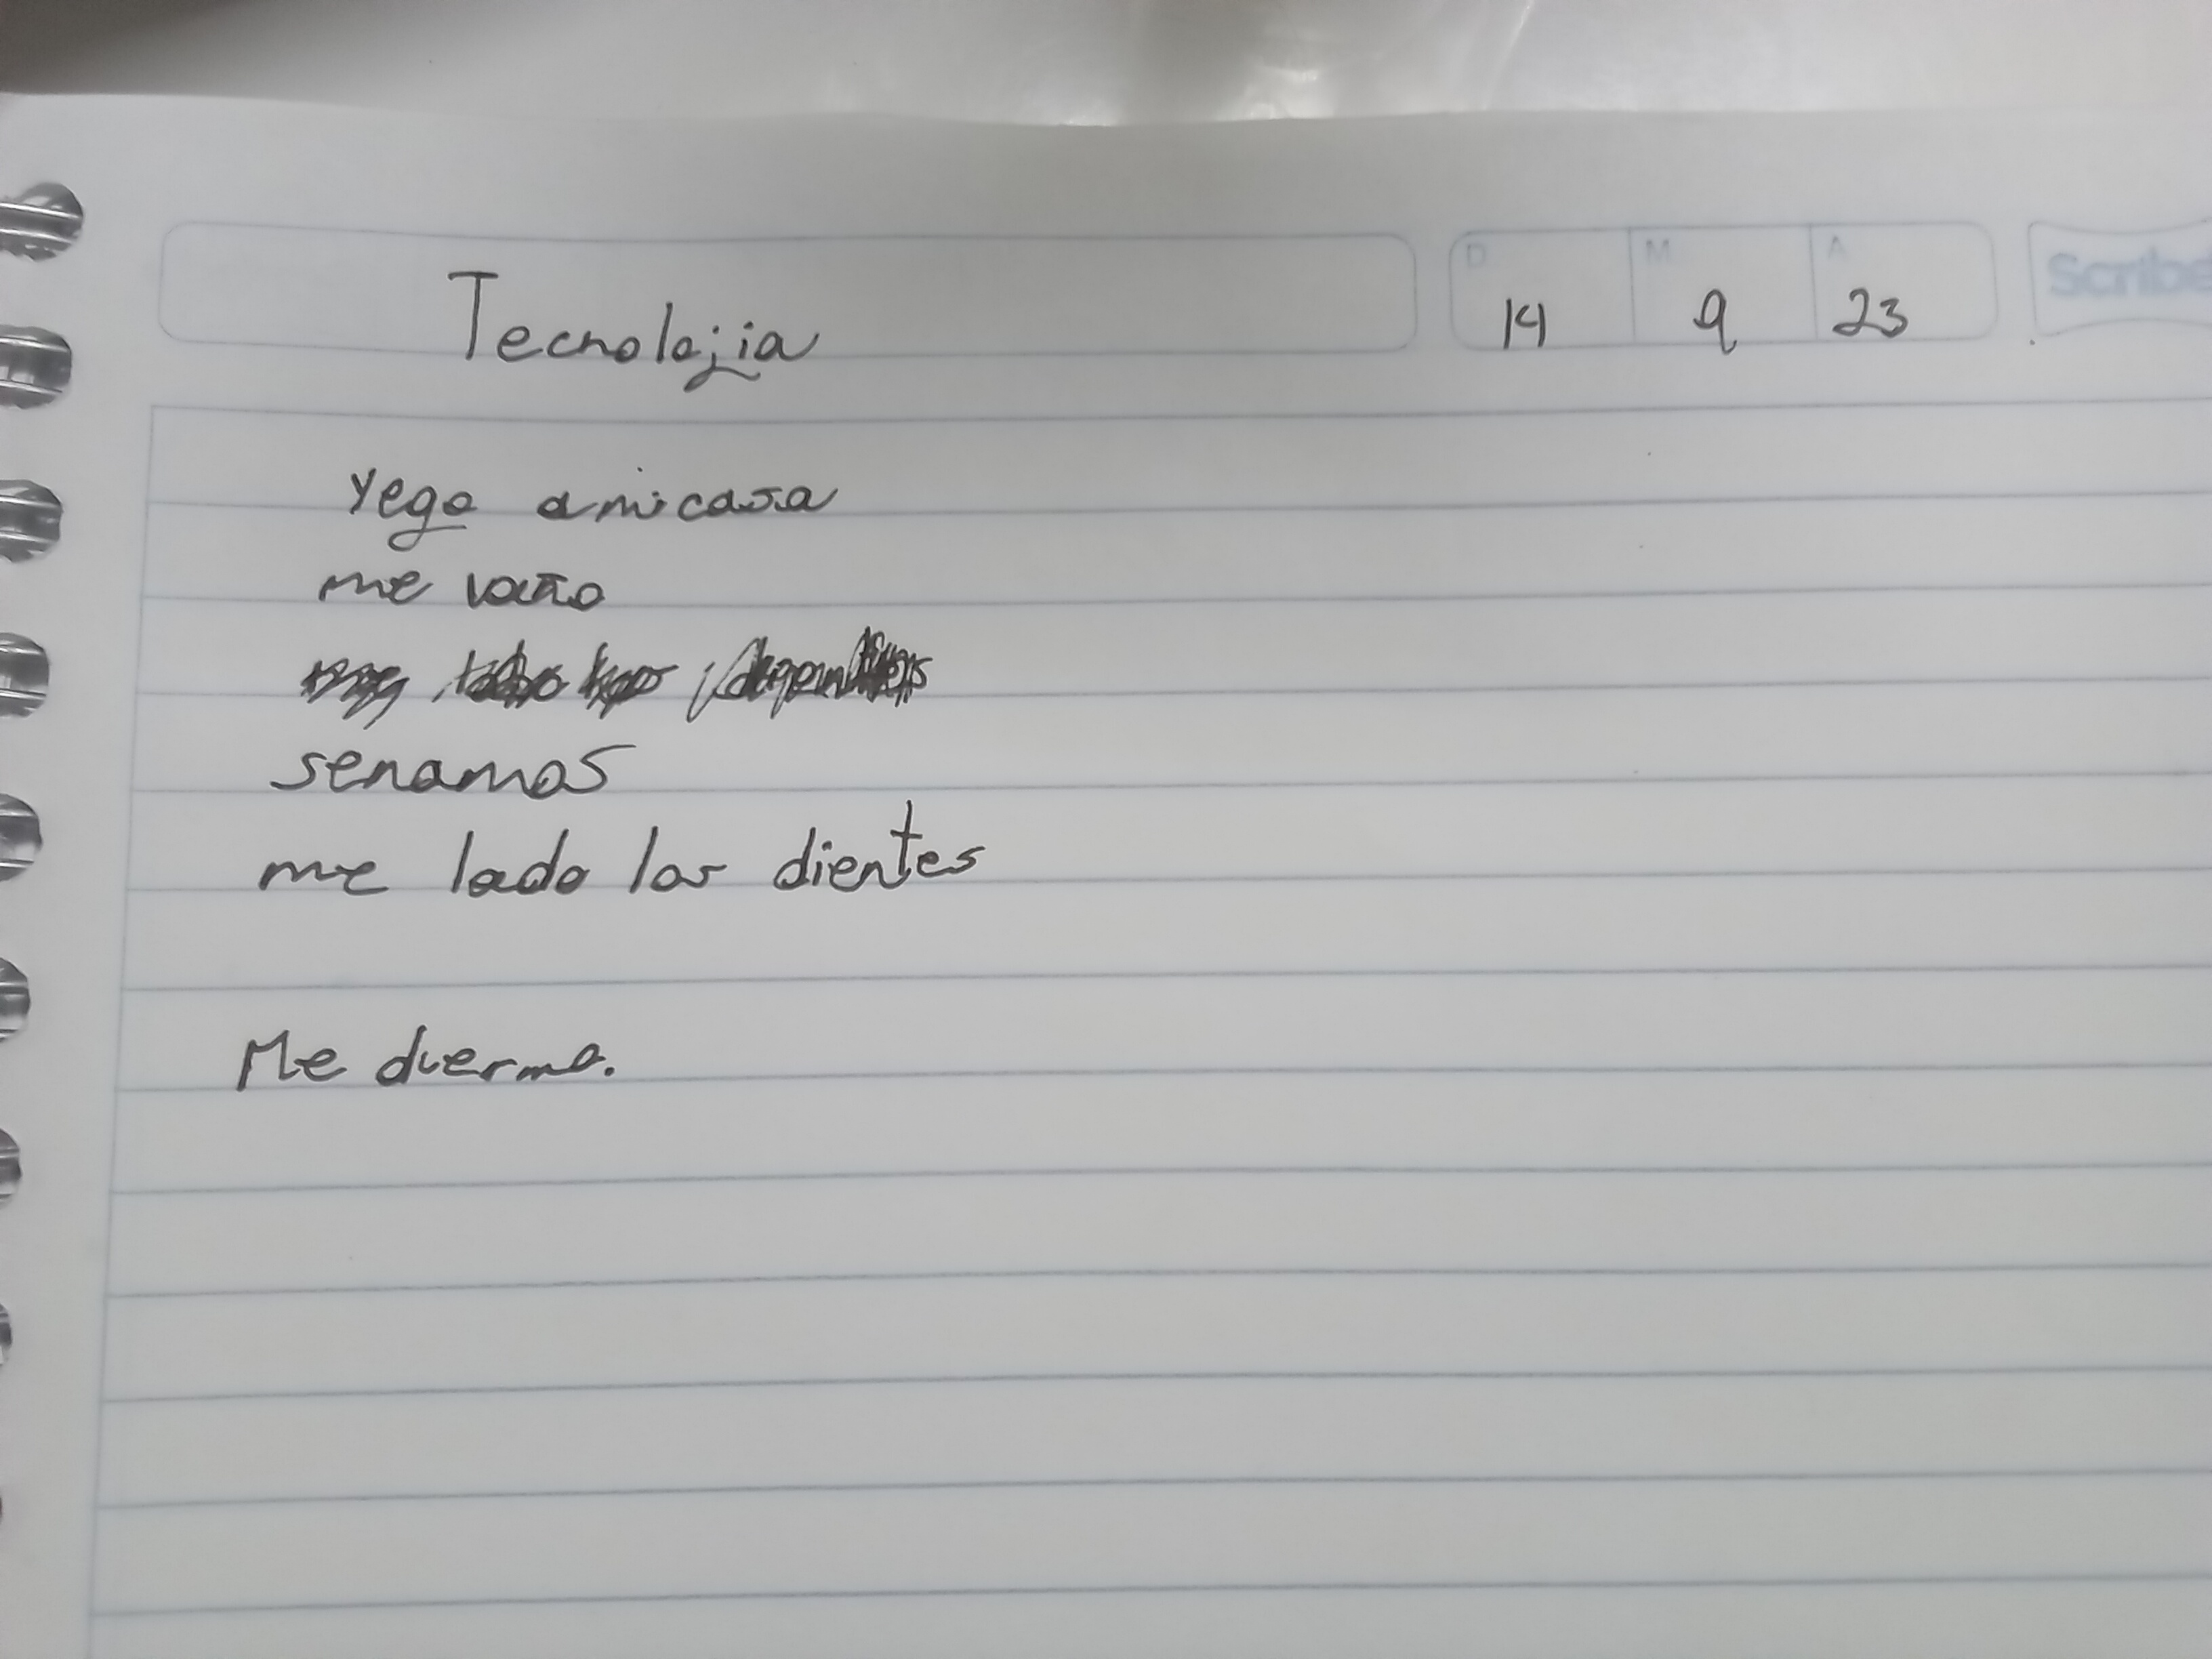 Tecnolojia
D 14 M 9 A 23
Scribe
Yego a mi casa
me vaño
senamos
me lado los dientes
Me duermo.